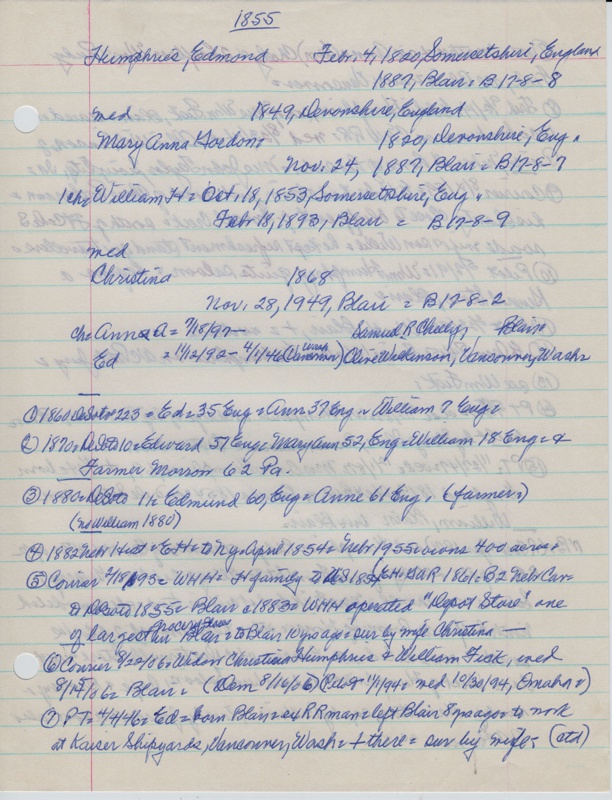 1855
Humphries, Edmond Feb. 4, 1820, Somersetshire, England
1887, Blair = B17-8-8
med 1849, Devonshire, England
Mary Anna 1820, Devonshire, Eng.
Nov. 24, 1887, Blair = B17-8-7
1ch = William H = Oct. 18, 1853, Somersetshire, Eng.
Feb 18, 1893, Blair = B17-8-9
med
Christina 1868
Nov. 28, 1949, Blair = B17-8-2
ch = Anna A = 7/18/97 — Samuel R Blair
Ed = 11/12/92 - 4/1/46 (Vancouver, Wash) Olive Wilkinson, Vancouver, Wash =
① 1860 DeSoto 223 = Ed = 35 Eng = Ann 37 Eng = William 7 Eng =
② 1870 = DeSoto 10 = Edward 51 Eng = Mary Ann 52, Eng = William 18 Eng = &
Farmer Morrow 62 Pa.
③ 1880 = DeSoto 11 = Edmund 60, Eng = Anne 61 Eng. (farmer)
(no William 1880)
④ 1882 Nebr Hist = EH = to Ny = April 1854 = Nebr 1955 = owns 400 acres =
⑤ Courier 2/18/93 = WHH = H family to US 1854 (EH = GAR 1861 = B2 Nebr Cav =
to DeSoto 1855 = Blair c 1883 = WHH operated "Depot Store" one
of largest grocery stores in Blair = to Blair 10 yrs ago = sur by wife Christina —
⑥ Courier 8/22/06 = Widow Christina Humphries & William Fick, med
8/15/06 = Blair = (Dem 8/16/06) (Pilot 11/1/94 = med 10/30/94, Omaha =)
⑦ PT = 4/4/46 = Ed = born Blair = ex RR man = left Blair 8 yrs ago = to work
at Kaiser Shipyards, Vancouver, Wash = + there = sur by wife - (ctd)